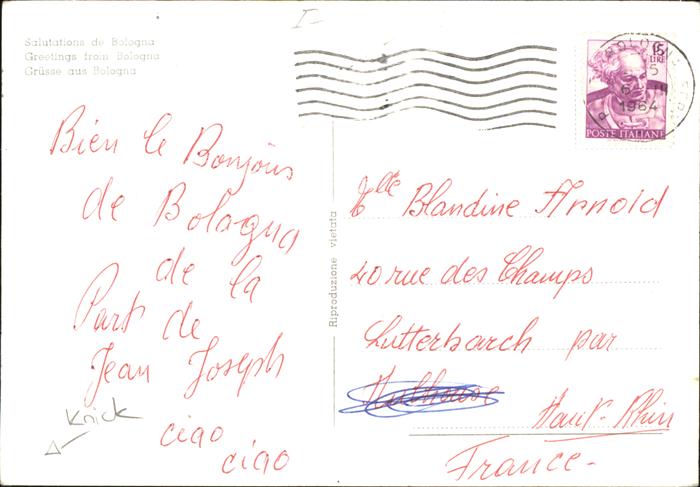 I-
Salutations de Bologna
Greetings from Bologna
Grüsse aus Bologna
Bien le Bonjour
de Bologna
de la
Part de
Jean Joseph
ciao
ciao
Knick
Riproduzione vietata
15
LIRE
BOLOGNA
5
6 III
1964
POSTE ITALIANE
Mlle Blandine Arnold
40 rue des Champs
Lutterbach par
Mulhouse
Haut-Rhin
France-